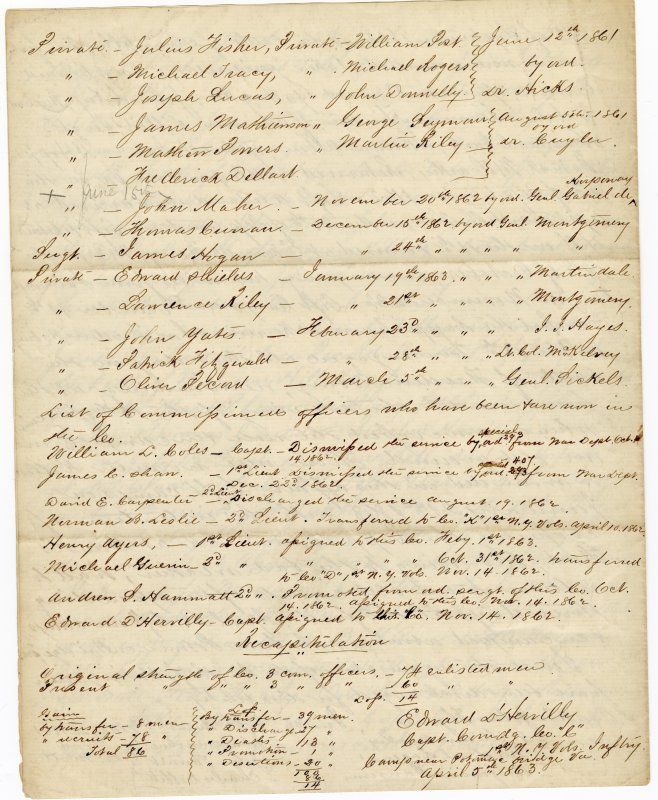 Private - Julius Fisher, Private - William Post. June 12th 1861
" - Michael Tracy, " Michael Rogers by ord.
" - Joseph Lucas, " John Donnelly. Dr. Hicks.
" - James Mathienson " George Seymour August 5th 1861
" - Mathew Powers. " Martin Riley by ord Dr. Cuyler.
" Frederick Dellart
+ June 15th
" - John Maher - November 20th 1862 by ord. Genl. Gabriel de Korponay
" - Thomas Curran - December 16th 1862 by ord Genl. Montgomery
Sergt. - James Hogan - " 24th " " " "
Private - Edward Shields - January 19th 1863. " " " Martindale.
" - Lawrence Riley - " 21st " " " Montgomery.
" - John Yates - February 23d " " " J. J. Hayes.
" - Patrick Fitzgerald - " 28th " " " Lt. Col. McKelvey
" Oliver Picard - March 5th " " " Genl. Sickels.
List of Commissioned officers who have been & are now in
the Co.
William L. Coles - Capt. - Dismissed the service by special ord. 293 from War Dept. Oct.
14. 1862.
James C. Shaw. - 1st Lieut Dismissed the service by special ord. 407 from War Dept.
Dec. 22d 1862.
David E. Carpenter - 2d Lieut - Discharged the service August 19. 1862.
Norman B. Leslie - 2d Lieut. Transferred to Co. "K" 1st N.Y. Vols. April 10. 1862
Henry Ayers, - 1st Lieut. assigned to this Co. Feby. 1st 1863.
Michael Guerin - 2d " " " " Oct. 31st 1862 transferred
to Co. "D" 1st N.Y. Vols. Nov. 14. 1862.
Andrew S. Hammatt 2d ". Promoted from ord. sergt. of this Co. Oct.
14. 1862. assigned to this Co. Nov. 14. 1862.
Edward D'Hervilly - Capt. assigned to this Co. Nov. 14. 1862.
Recapitulation
Original strength of Co. 3 com. officers. - 74 enlisted men
Present " " " 3 " " 60 " "
Defs. 14
Gain
by transfer - 8 men
" recruits - 78 "
Total 86
Loss
By transfer - 39 men.
" Discharge 27 "
" Deaths 13 "
" Promotion 1 "
" Desertions - 20 "
100
86
14
Edward D'Hervilly
Capt. Comdg. Co. "C"
1st N.Y. Vols. Inftry.
Camp near Potomac Bridge Va.
April 5th 1863.